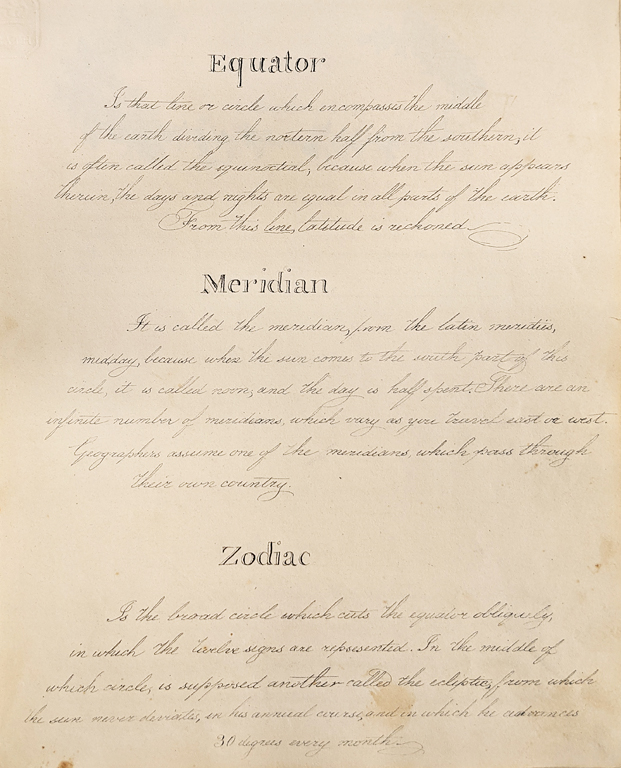 Equator
Is that line or circle which encompasses the middle
of the earth dividing the nortern half from the southern, it
is often called the equinoctial, because when the sun appears
therein, the days and nights are equal in all parts of the earth.
From this line, latitude is reckoned
Meridian
It is called the meridian, from the latin meridies,
midday, because when the sun comes to the south part of this
circle, it is called noon, and the day is half spent. There are an
infinite number of meridians, which vary as you travel east or west.
Geographers assume one of the meridians, which pass through
their own country.
Zodiac
Is the broad circle which cuts the equator obliquely,
in which the twelve signs are represented. In the middle of
which circle, is supposed another called the ecliptic, from which
the sun never deviates, in his annual course, and in which he advances
30 degrees every month